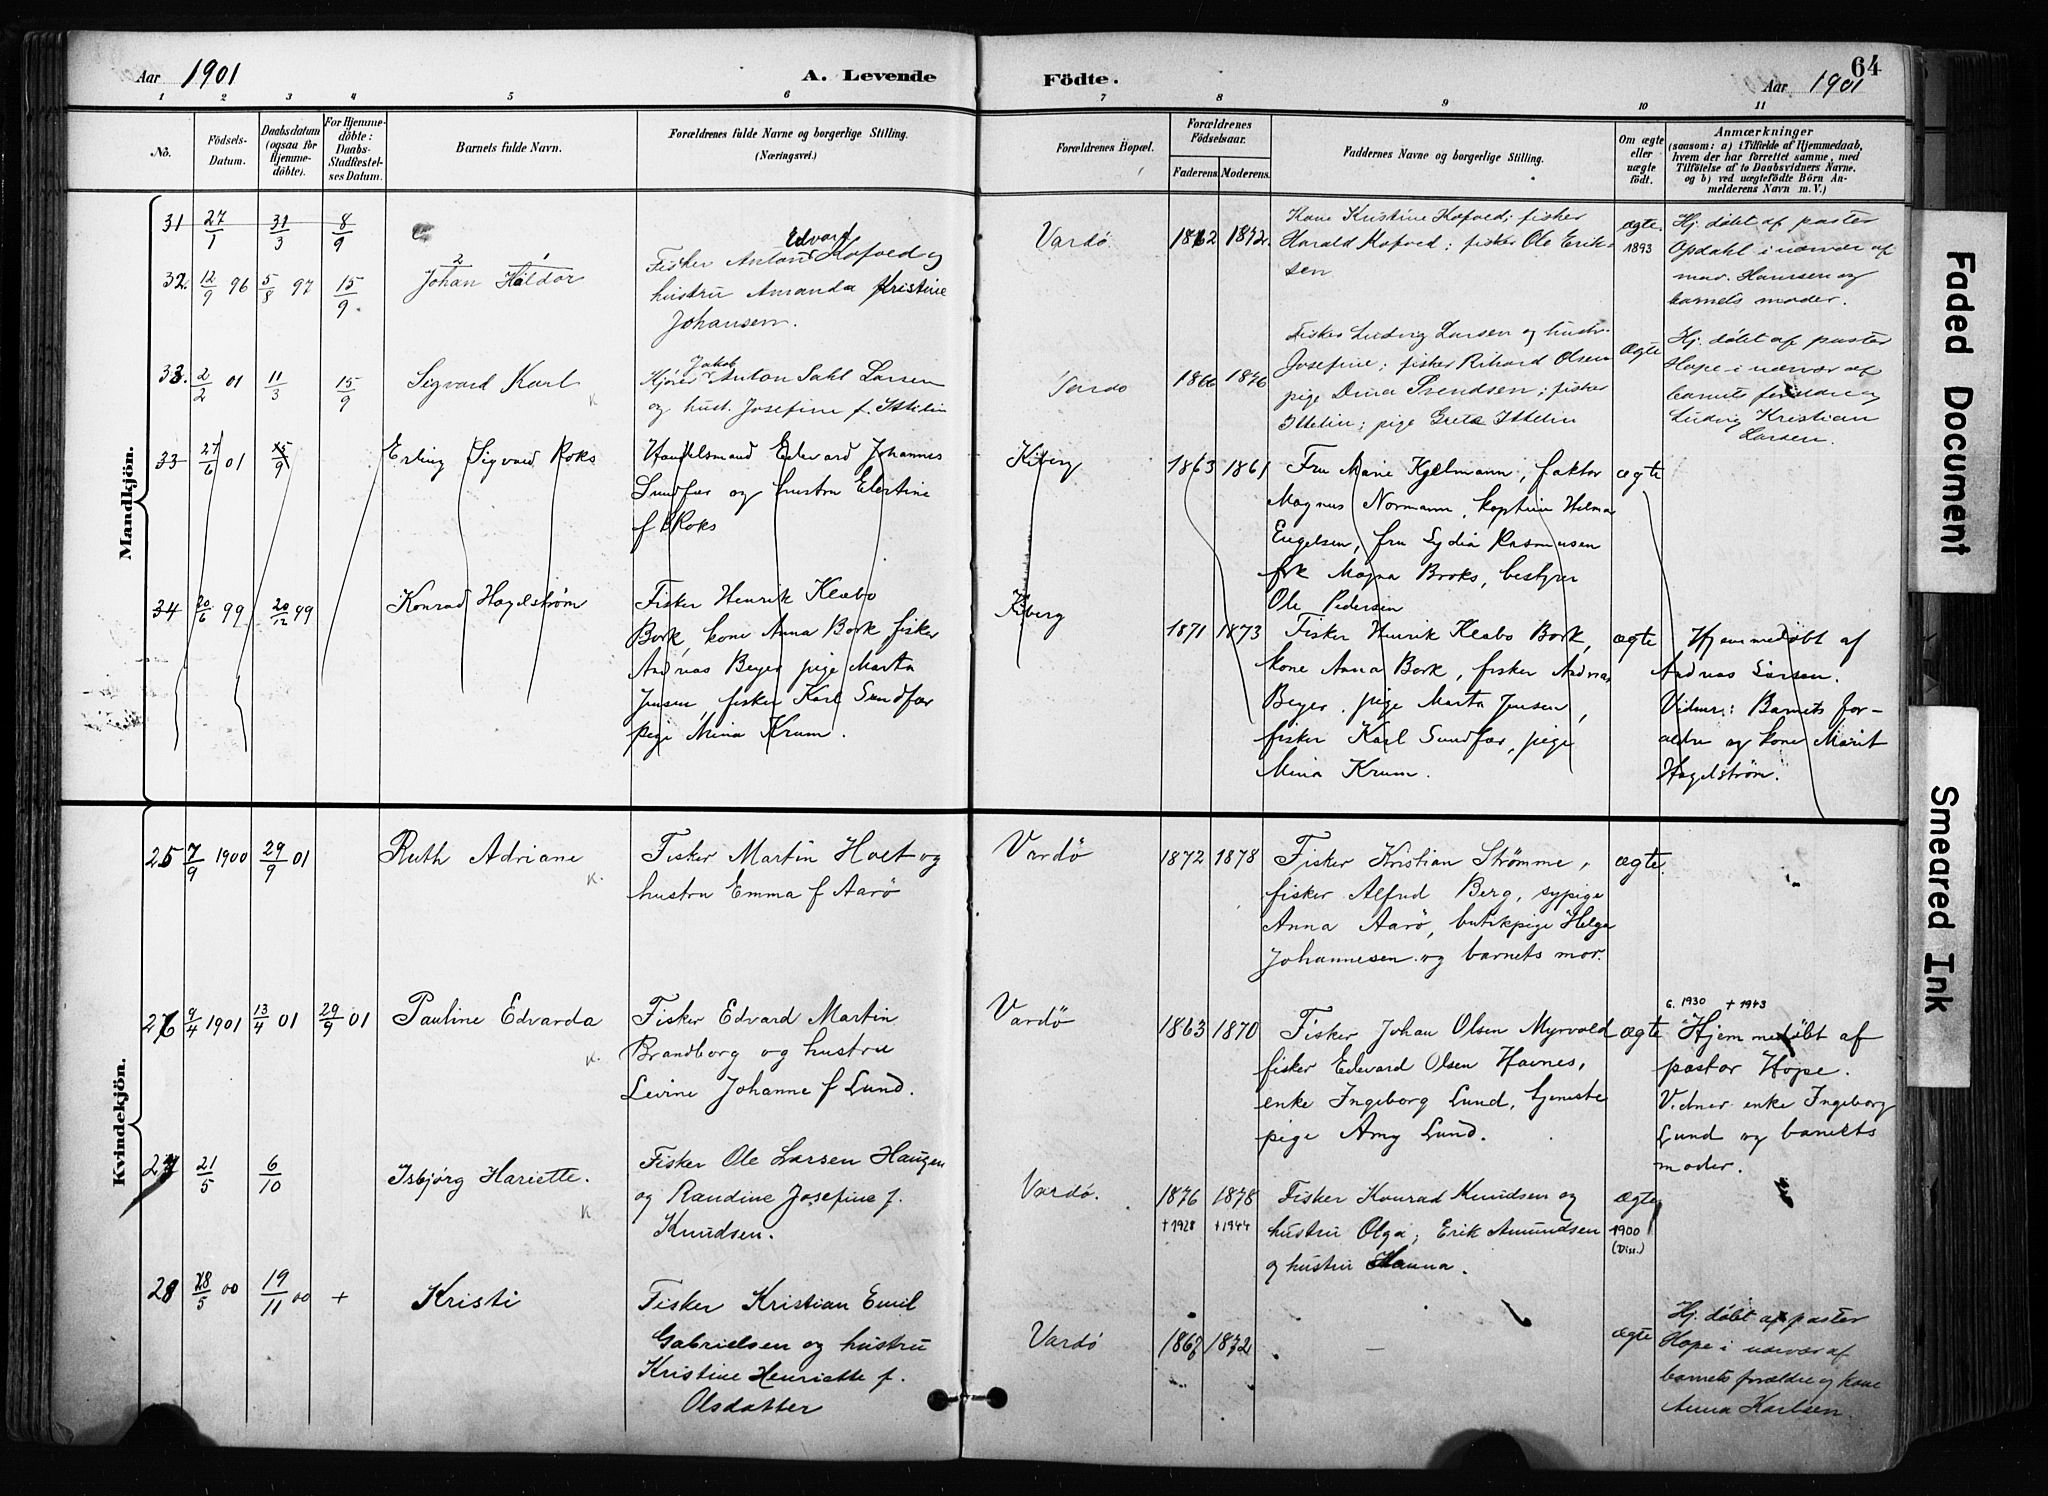 64
Aar 1901
A. Levende
Födte.
Aar 1901
1 2 3 4 5 6 7 8 9 10 11
No.
Födsels-
Datum.
Daabsdatum
(ogsaa for
Hjemme-
döbte).
For Hjemme-
döbte:
Daabs-
Stadfestel-
ses Datum.
Barnets fulde Navn.
Forældrenes fulde Navne og borgerlige Stilling.
(Næringsvei.)
Forældrenes Bopæl.
Forældrenes
Födselsaar.
Faderens. Moderens.
Faddernes Navne og borgerlige Stilling.
Om ægte
eller
uægte
födt.
Anmærkninger
(saasom: a) i Tilfælde af Hjemmedaab,
hvem der har forrettet samme, med
Tilföielse af to Daabsvidners Navne.
og b) ved uægtefödte Börn An-
melderens Navn m. V.)
Mandkjön.
31 27/1 31/3 8/9
32. 12/9 96 5/8 97 15/9
2 1
Johan Haldor
Edvard
Fisker Anton Hofved og
hustru Amanda Kristine
Johansen.
Vardö
1862 1872.
Kone Kristine Hofved; fisker
Harald Hofved; fisker Ole Erik-
sen
ægte
1893
Hj. döbt af pastor
Opdahl i nærvær af
mad. Hanssen og
barnets moder.
33. 2/2 01 11/3 15/9
Sigvard Karl
K
Jakob
Anton Dahl Larsen
og hust. Josefine f. Ittelin
Vardö
1866 1876
Fisker Ludvig Larsen og hustr.
Josefine; fisker Rikard Olsen
pige Dina Svendsen; fisker
Ittelin; pige Greta Ittelin
Ægte
Hj. döbt af pastor
Hope i nærvær af
barnets forældre og
Ludvig Kristian
Larsen.
33 27/6 01 15/9
Erling Sigvard Roks
Handelsmand Edevard Johannes
Sundfær og hustru Elertine
f Roks
Kiberg
1863 1861
Fru Marie Kjelmann, faktor
Magnus Normann, kaptein Helmar
Engelsen, fru Lydia Rasmusen
frk Magna Broks, bestyrer
Ole Pedersen
ægte
34 20/6 99 20/12 99
Konrad Hagelström
Fisker Henrik Klæbo
Bork, kone Anna Bork fisker
Andreas Beyer pige Marta
Jensen, fisker Karl Sundfær
pige Mina Krum.
Kiberg
1871 1873
Fisker Henrik Klæbo Bork,
kone Anna Bork, fisker Andreas
Beyer, pige Marta Jensen,
fisker Karl Sundfær, pige
Mina Krum.
ægte
Hjemmedöbt af
Andreas Larsen.
Vidner: Barnets for-
ældre og kone Marit
Hagelström.
Kvindekjön.
25 7/9 1900 29/9 01
Ruth Adriane
K.
Fisker Martin Hoet og
hustru Emma f Aarö
Vardö
1872 1878
Fisker Kristian Strömme,
fisker Alfred Berg, sypige
Anna Aarö, butikpige Helga
Johannesen og barnets mor.
ægte.
26 9/4 1901 13/4 01 29/9 01
Pauline Edvarda
K.
Fisker Edvard Martin
Brandborg og hustru
Levine Johanne f Lund.
Vardö
1863 1870
Fisker Johan Olsen Myrvold
fisker Edevard Olsen Havnes,
enke Ingeborg Lund, tjeneste
pige Amy Lund.
ægte
G. 1930 † 1943
Hjemmedöbt af
pastor Hope.
Vidner enke Ingeborg
Lund og barnets
moder.
27 21/5 6/10
Isbjörg Hariette.
K
Fisker Ole Larsen Haugen
og Randine Josefine f.
Knudsen.
Vardö.
1876 1878
† 1928 † 1944
Fisker Konrad Knudsen og
hustru Olga; Erik Amundsen
og hustru Hanna.
ægte
1900
(Diss.)
28 28/5 00 19/11 00 +
Kristi
Fisker Kristian Emil
Gabrielsen og hustru
Kristine Henriette f.
Olsdatter
Vardö
1867 1872
ægte
Hj. döbt af pastor
Hope i nærvær af
barnets forældre og kone
Anna Karlsen.
Faded Document
Smeared Ink